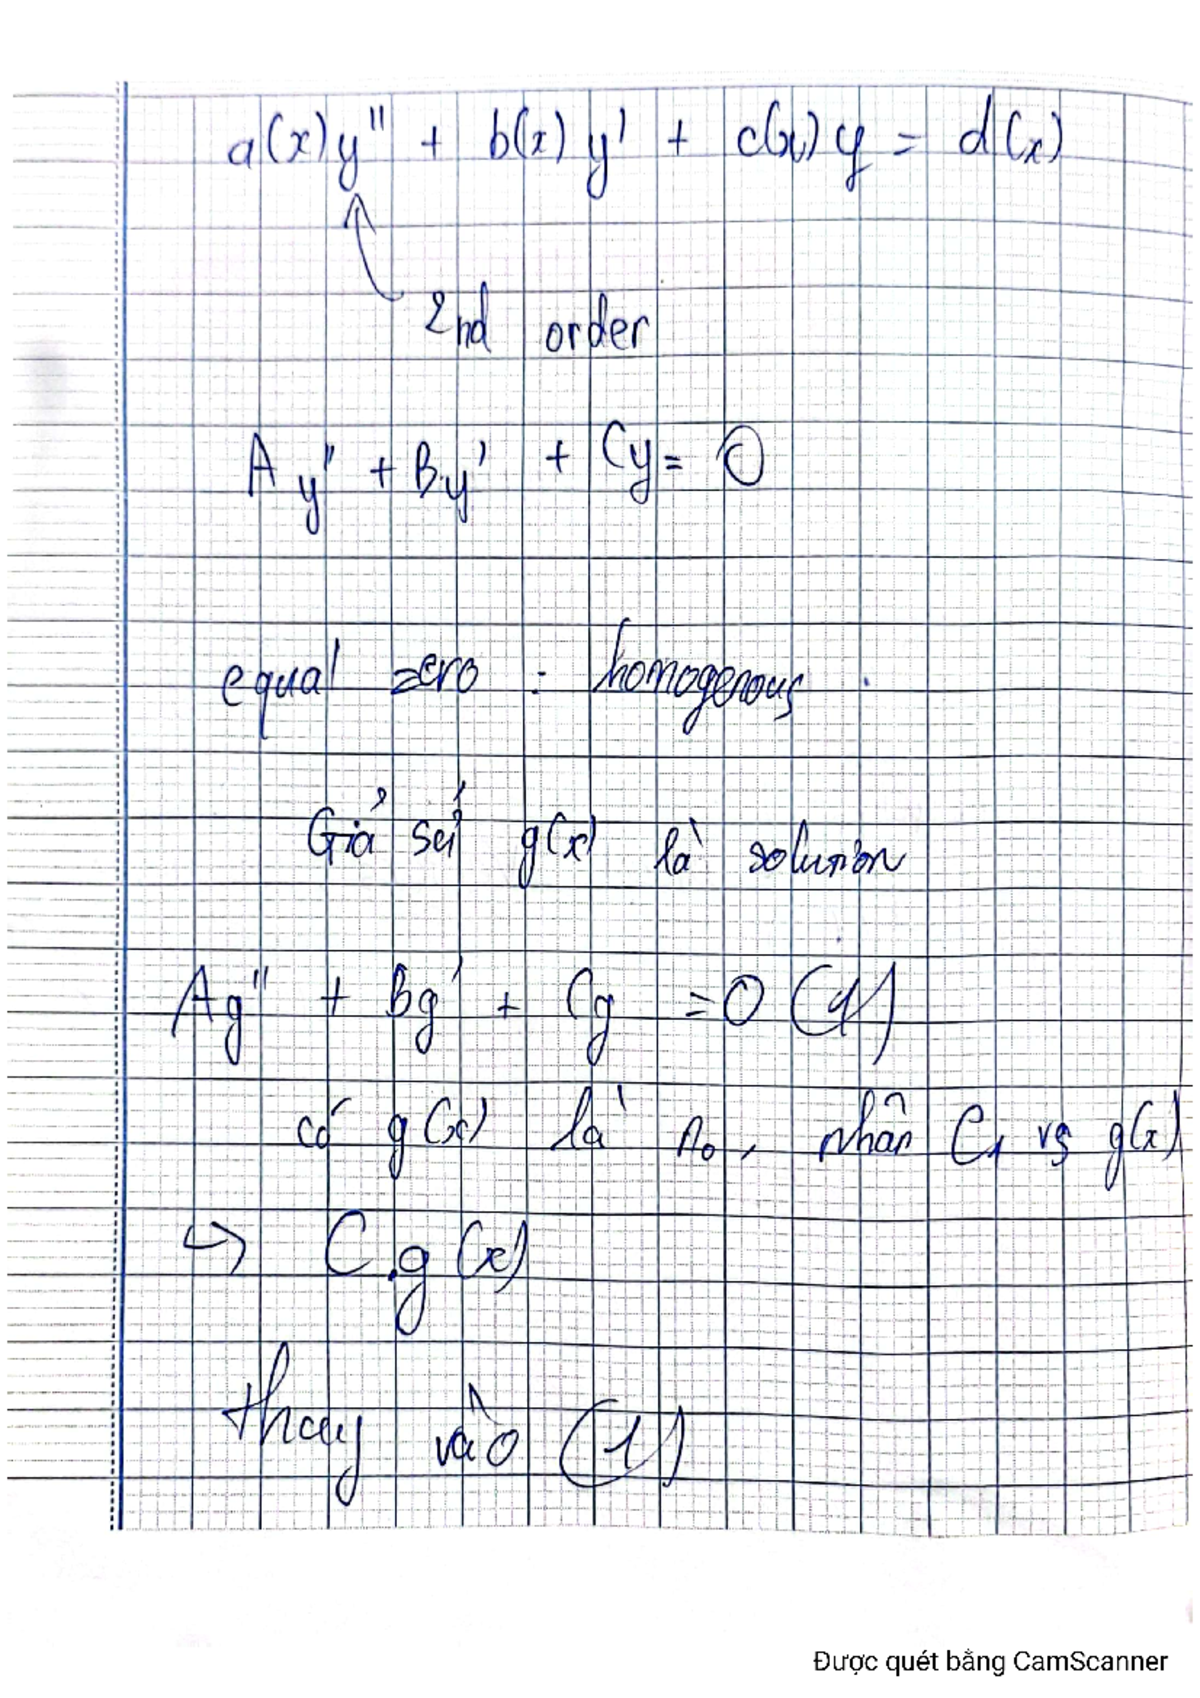 a(x)y" + b(x)y' + c(x)y = d(x)
2nd order
Ay" + By' + Cy = 0
equal zero : homogenous
Giả sử g(x) là solution
Ag" + Bg' + Cg = 0 (1)
có g(x) là n₀, nhân C₁ vs g(x)
↪ C.g(x)
thay vào (1)
Được quét bằng CamScanner